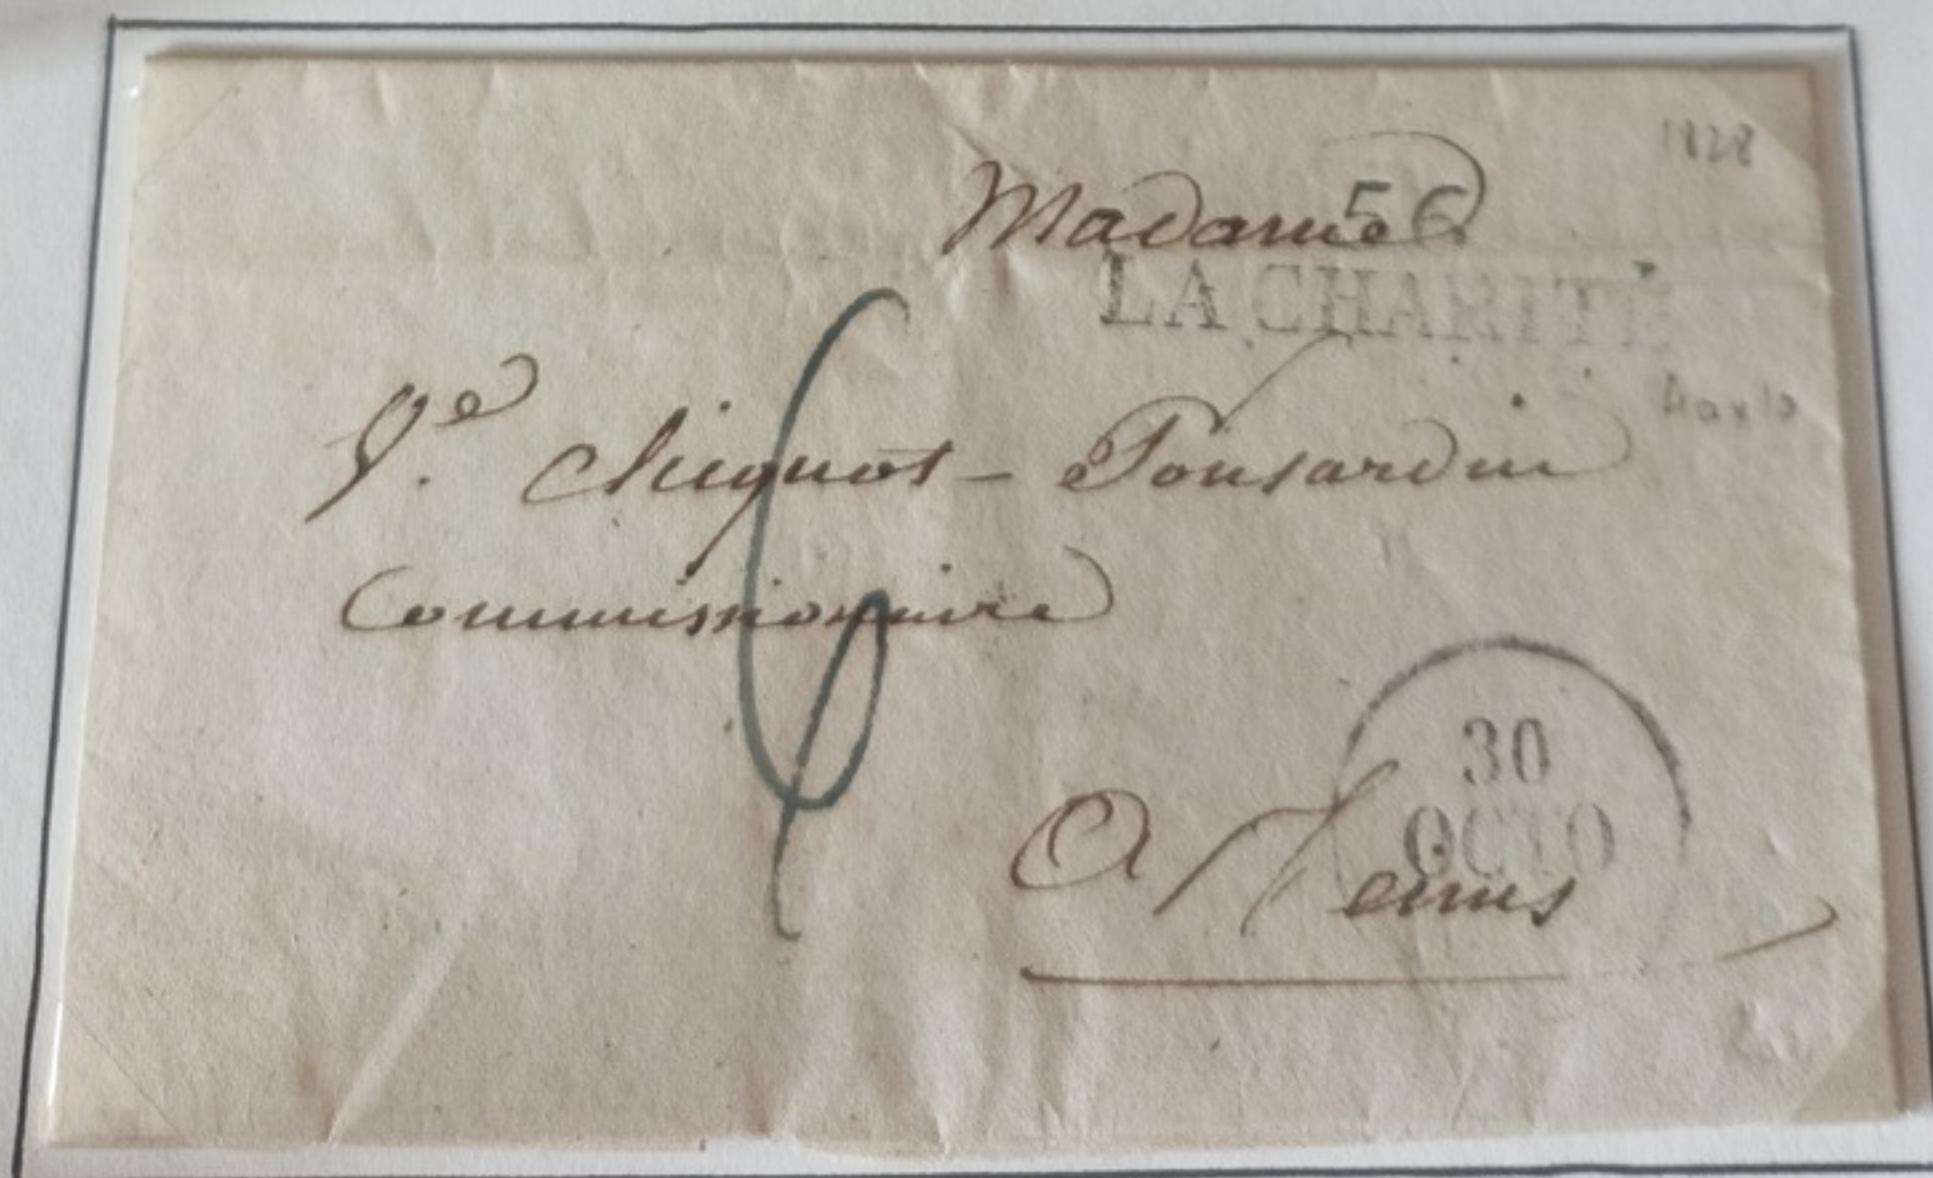 1828
Madame
56
LA CHARITÉ
40 x 10
Ve Clicquot - Ponsardin
Commissionnaire
6
30
OCTO
A Reims